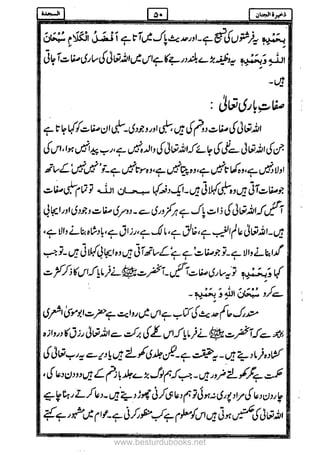 ذخیرة الجنان
۵۰
السجدة
بِحَمْدِهِ یہ فرشتوں کی تسبیح ہے۔ اور حدیث پاک میں آتا ہے اَفْضَلُ الْكَلَامِ سُبْحَانَ
اللّٰهِ وَبِحَمْدِهِ یہ وظیفہ بڑے بلند درجے کا ہے اس میں اللہ تعالیٰ کی ساری صفات آجاتی
ہیں۔
صفات باری تعالیٰ :
اللہ تعالیٰ کی صفات دو قسم کی ہیں، سلبی اور وجودی۔ سلبی ان صفات کو کہا جاتا ہے
جن کی اللہ تعالیٰ سے نفی کی جائے کہ اللہ تعالیٰ کی والدہ نہیں ہے، رب پیدا نہیں ہوا، اس کی
اولاد نہیں ہے، وہ کھاتا نہیں ہے، وہ پیتا نہیں ہے، وہ سوتا نہیں ہے۔ تو نہیں نہیں کے ساتھ
جو صفات آتی ہیں وہ سلبی کہلاتی ہیں۔ ایک دفعہ کہا سبحان اللہ تو تمام سلبی صفات
آگئیں کہ اللہ تعالیٰ کی ذات پاک ہے ہر کمزوری سے۔ دوسری صفات وجودی اور ایجابی
ہیں۔ اللہ تعالیٰ عالم الغیب ہے، خالق ہے، مالک ہے، رزاق ہے، بادشاہ بنانے والا ہے،
گدا بنانے والا ہے۔ تو جو صفات ہے ہے کے ساتھ آتی ہیں وہ ایجابی کہلاتی ہیں۔ تو جب
کہا وَبِحَمْدِهِ تو یہ ساری صفات آگئیں۔ آنحضرت ﷺ نے فرمایا کہ اس کا ذکر کثرت
سے کرو سُبْحَانَ اللّٰهِ وَ بِحَمْدِهِ۔
متدرک حاکم حدیث کی کتاب ہے اس میں روایت ہے حضرت ابوموسیٰ اشعری
رضی اللہ عنہ سے کہ آنحضرت ﷺ نے فرمایا کہ اس کلمے کی برکت سے اللہ تعالیٰ رزق کا دروازہ
کشادہ فرما دیتے ہیں۔ یہ حقیقت ہے۔ لیکن جلدی کھولتے نہیں ہیں یا دیر سے یہ رب تعالیٰ کی
حکمت ہے مگر کھولتے ضرور ہیں۔ جب کہ ہم لوگ بڑے جلد باز قسم کے ہیں دو دن دعا کی،
چار دن دعا کی مراد پوری نہ ہوئی تو ہم دعا ہی کرنی چھوڑ دیتے ہیں۔ دعا کرتے رہنا چاہیے
اللہ تعالیٰ کی حکمتیں ہوتی ہیں اس کو معلوم ہے کب منظور کرنی ہے۔ عوام میں مشہور ہے کہتے
www.besturdubooks.net